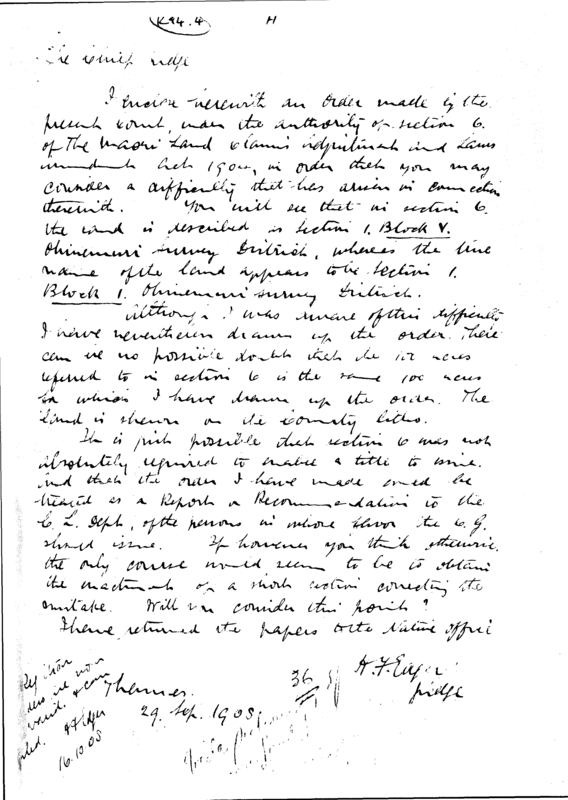 K94.4 H
The Chief Judge
I enclose herewith an Order made by the
present Court, under the authority of section 6.
of The Maori Land Claims Adjustment and Laws
Amendment Act 1904, in order that you may
consider a difficulty that has arisen in connection
therewith. You will see that in section 6.
the land is described as Section 1. Block V.
Ohinemuri Survey District, whereas the true
name of the land appears to be Section 1.
Block 1. Ohinemuri Survey District.
Although I was aware of this difficulty
I have nevertheless drawn up the order. There
can be no possible doubt that the 100 acres
referred to in section 6 is the same 100 acres
for which I have drawn up the order. The
land is shewn on the County litho.
It is just possible that section 6 was not
absolutely required to enable a title to issue.
And that the order I have made could be
treated as a Report or Recommendation to the
C. L. Dept, of the persons in whose favor the C.G.
should issue. If however you think otherwise,
the only course would seem to be to obtain
the enactment of a short section correcting the
mistake. Will you consider this point?
I have returned the papers to the Native Office
H. F. Edger
Judge
Thames.
29. Sep. 1908
36
H F Edger
16.10.08